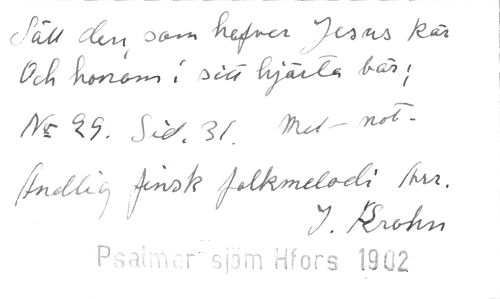 Säll den, som hafver Jesus kär
Och honom i sitt hjärta bär;
No 29. Sid. 31. Mel-not-
Andlig finsk folkmelodi Arr.
I. Krohn
Psalmer sjöm Hfors 1902